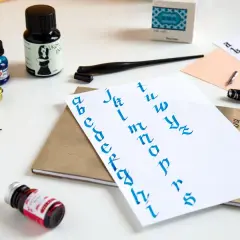 a
b
c
d
e
f
g
h
i
j
k
l
m
n
o
p
r
s
t
u
w
y
z